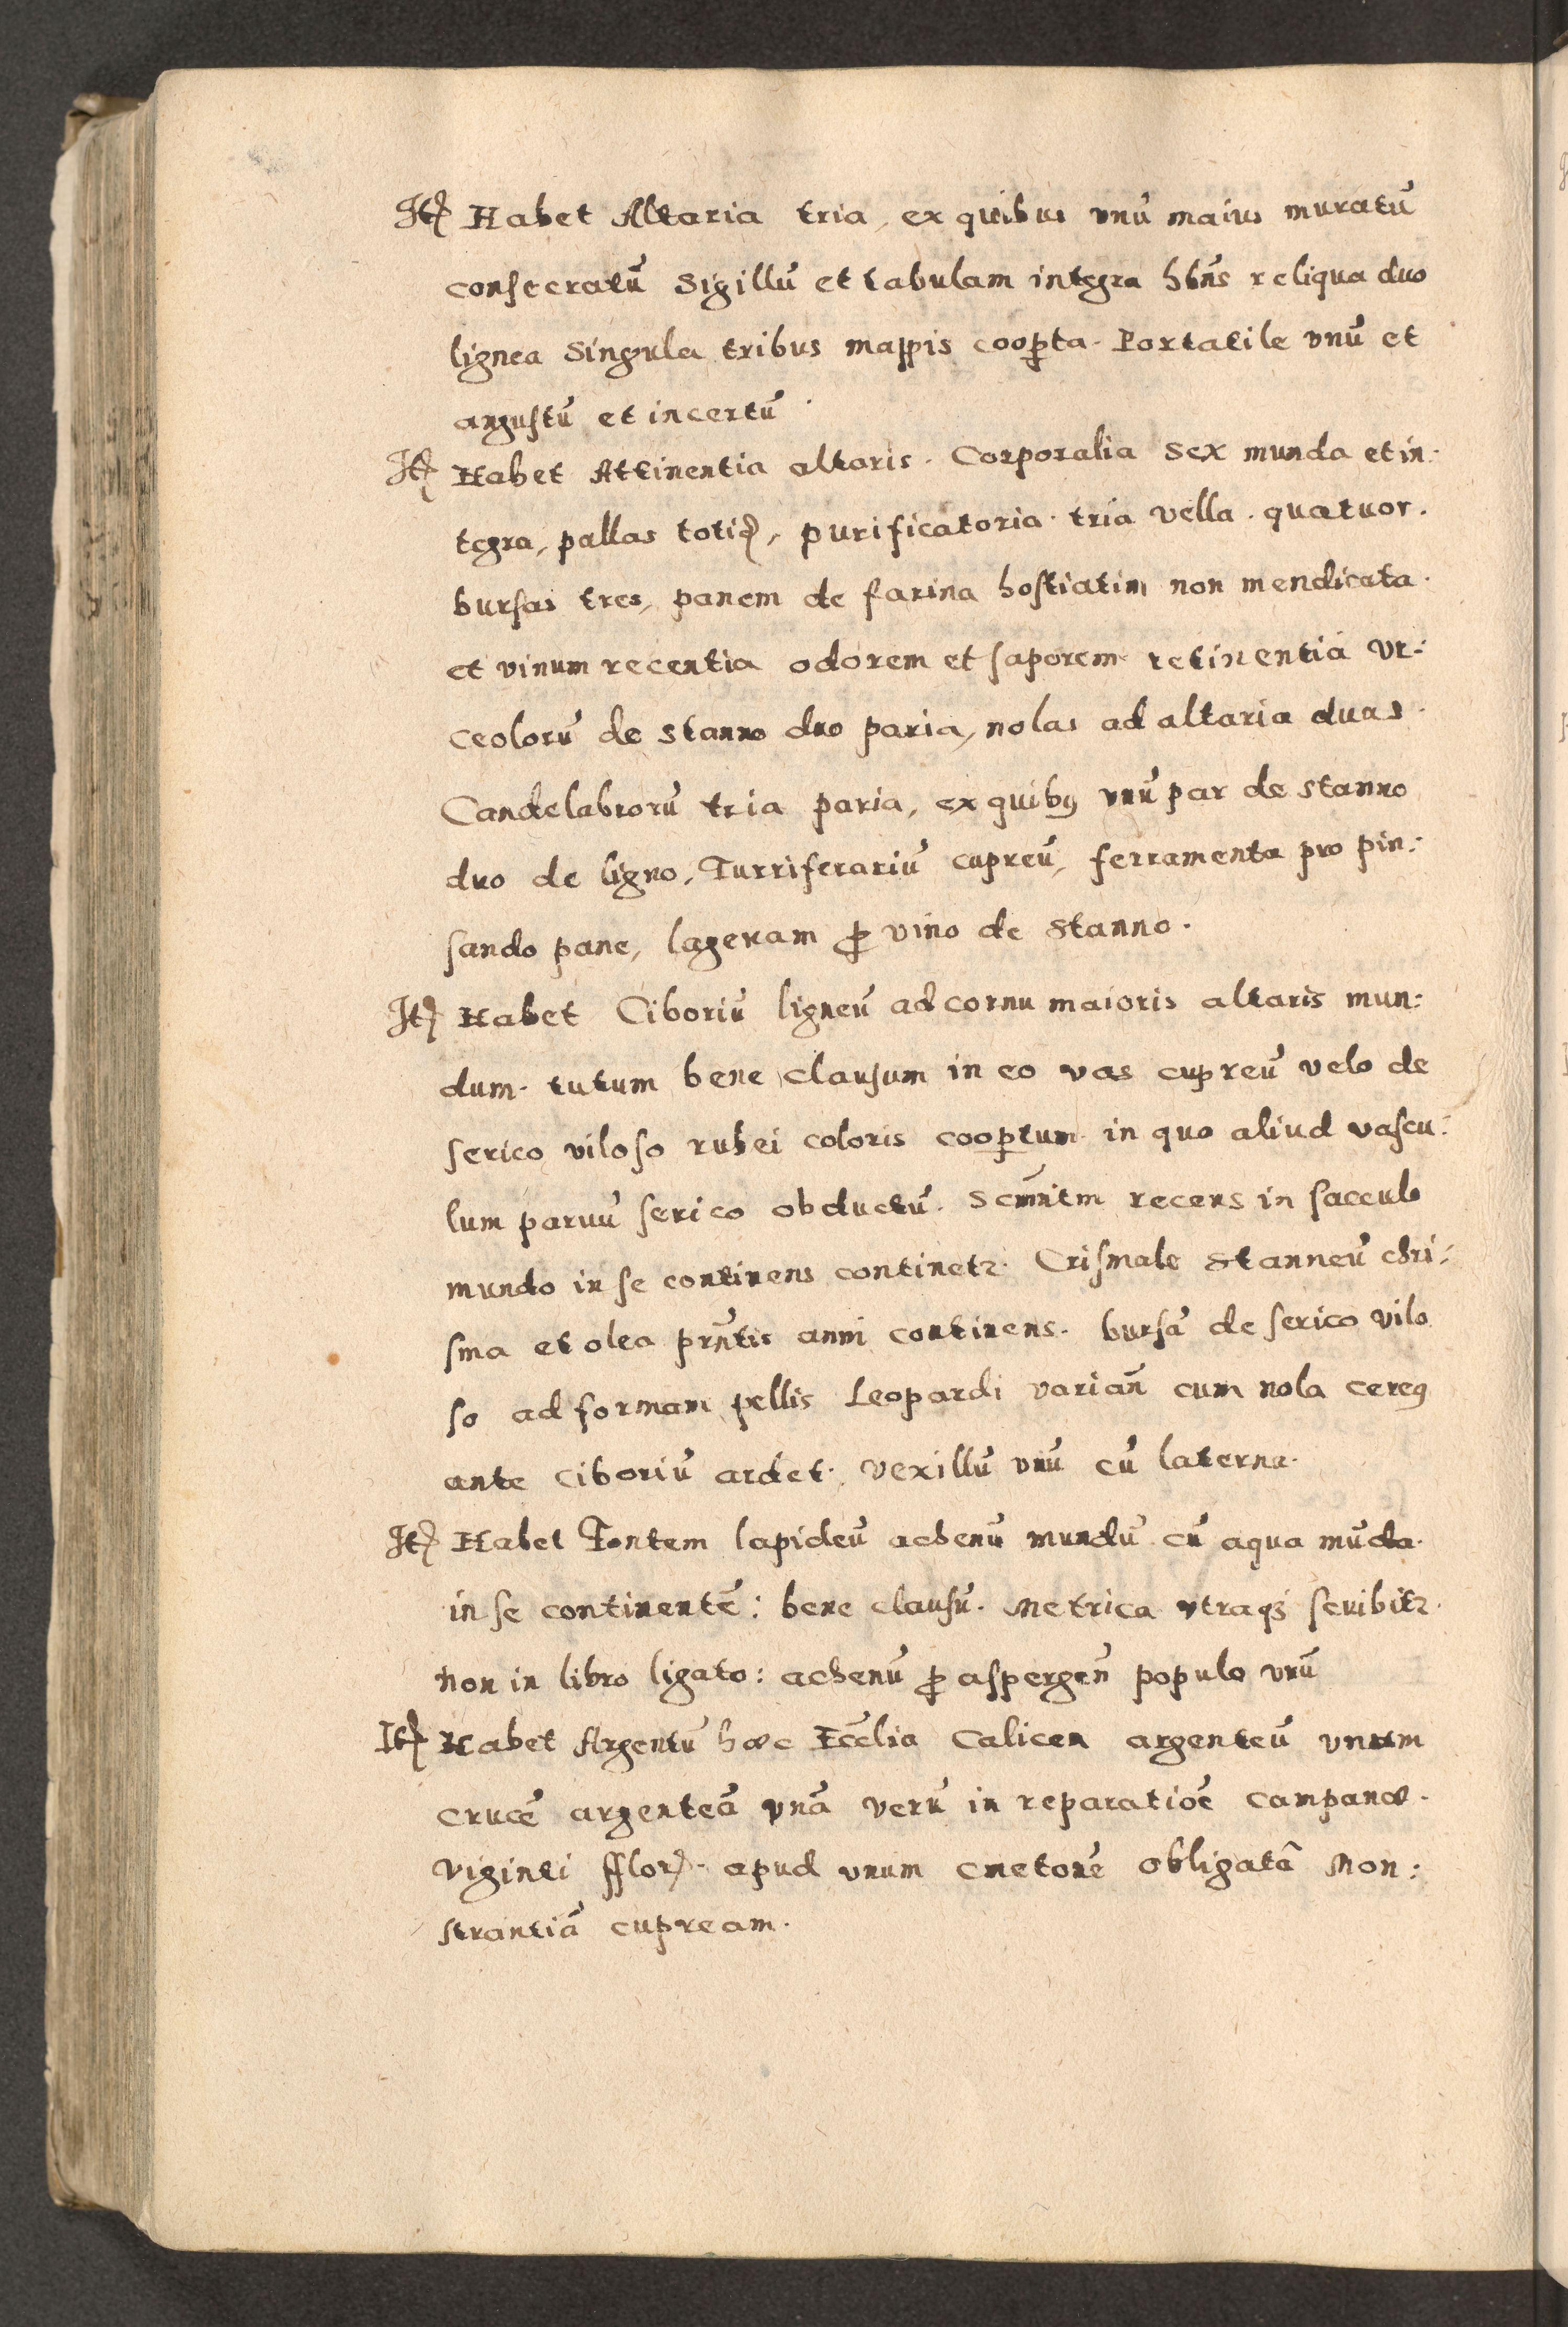 Itẽ Habet Altaria tria, ex quibus vnũ maius muratũ
consecratũ Sigillũ et tabulam integra hñs reliqua duo
lignea Singula tribus mappis coopta. Portatile vnũ et
angustũ et incertũ.
Itẽ Habet Attinentia altaris. Corporalia Sex munda et in:
tegra, pallas totiđ, purificatoria tria vella. quatuor.
bursas tres, panem de farina hostiatim non mendicata.
et vinum recentia odorem et saporem retinentia vr:
ceolorũ de stanno duo paria, nolas ad altaria duas.
Candelabrorũ tria paria, ex quibꝰ vnũ par de stanno
duo de ligno, Turriferariũ cupreũ, ferramenta pro pin:
sando pane, lagenam ꝓ vino de stanno.
Itẽ Habet Ciboriũ ligneũ ad cornu maioris altaris mun:
dum. tutum bene clausum in eo vas cupreũ velo de
serico viloso rubei coloris cooptum in quo aliud vascu:
lum paruũ serico obductũ. Scm̃tm recens in sacculo
mundo in se continens continetr. Crismale Stanneũ chri:
sma et olea pñtis anni continens. bursã de serico vilo
so ad formam pellis Leopardi varian̄ cum nola cereꝰ
ante ciboriũ ardet. vexillũ vnũ cũ laterna.
Itẽ Habet Fontem lapideũ achenũ mundũ cũ aqua mũda.
in se continentẽ: bene clausũ. Metrica vtraqꝫ scribitr.
non in libro ligato: achenũ ꝓ aspergen̄ populo vnũ
Itẽ Habet Argentũ hæc Eccl̃ia Calicem argenteũ vnum
crucẽ argenteã vnã verũ in reparatiõe campanæ.
viginti fflor. apud vnum cmetonẽ obligatã Mon:
strantiã cupream.